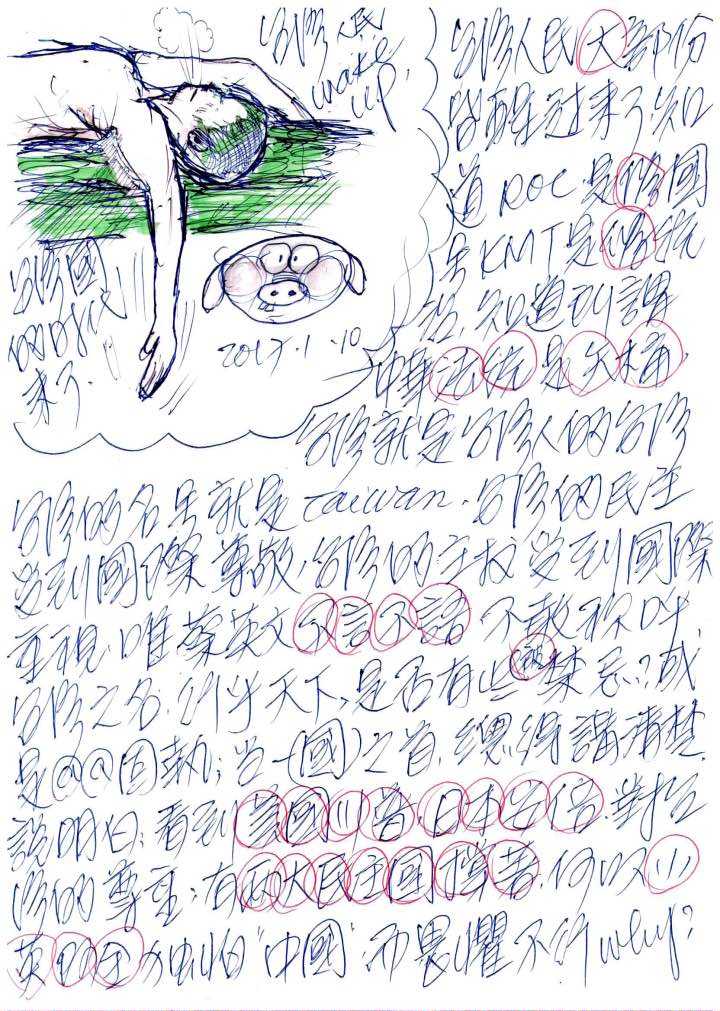 台灣人民
wake
up,
台灣國
的時代
來了.
2017.1.10
台灣人民大部份
皆醒过来了.知
道 ROC 是 國
KMT 是
知道到講
中華法統是
台灣就是台灣人的台灣
台灣的名字就是 Taiwan. 台灣的民主
受到國際尊敬,台灣的主权受到國際
重視.唯蔡英文不言不語 不敢称呼
台灣之名 天下,是否有些被禁忌?或
是@@固執;当一國之首,總得講清楚.
說明白;看到美國川普.日本安倍.對台
灣的尊重;有兩大民主國撐著.何以小
英 怕"中國" 而畏懼不行 why?